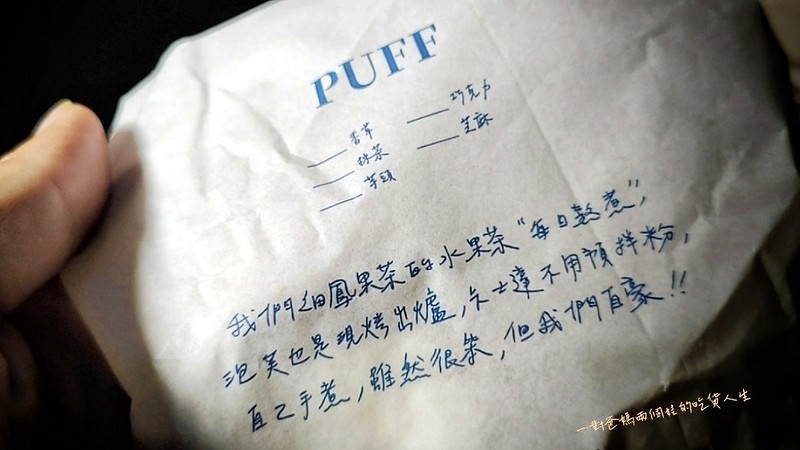 PUFF
___香草
___抹茶
___芋頭
___巧克力
___芝麻
我們細鳳果茶的水果茶“每日熬煮”,
泡芙也是現烤出爐,卡士達不用預拌粉,
自己手煮,雖然很笨,但我們自豪!!
一對爸媽兩個娃的吃貨人生